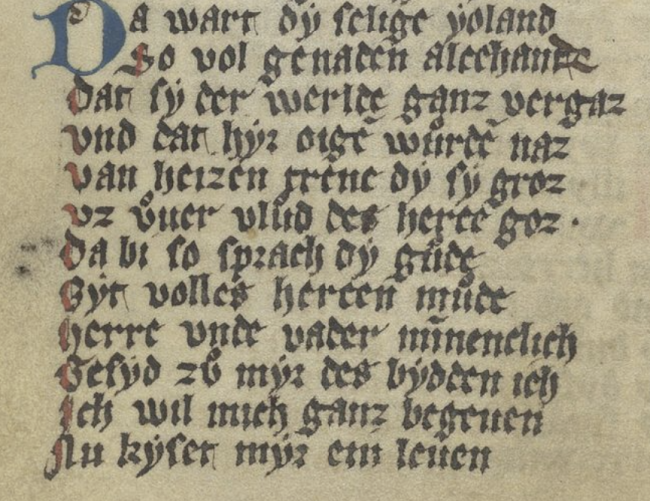 Da wart dẏ selige ẏoland
So vol genaden alcehande
Dat sẏ der werlde ganz vergaz
vnd dat hẏr oigē wůrdē naz
van heizen trēne dẏ sẏ groz
vz ůuer vlůd des herce goz ·
Da bi so sprach dẏ gůde
Gẏt volles hercen můde
herre vnde vader mīnenclich
Gesẏd zů mẏr des bẏdden ich
Ich wil mich ganz begeuen
Nu kẏset mẏr ein leuen